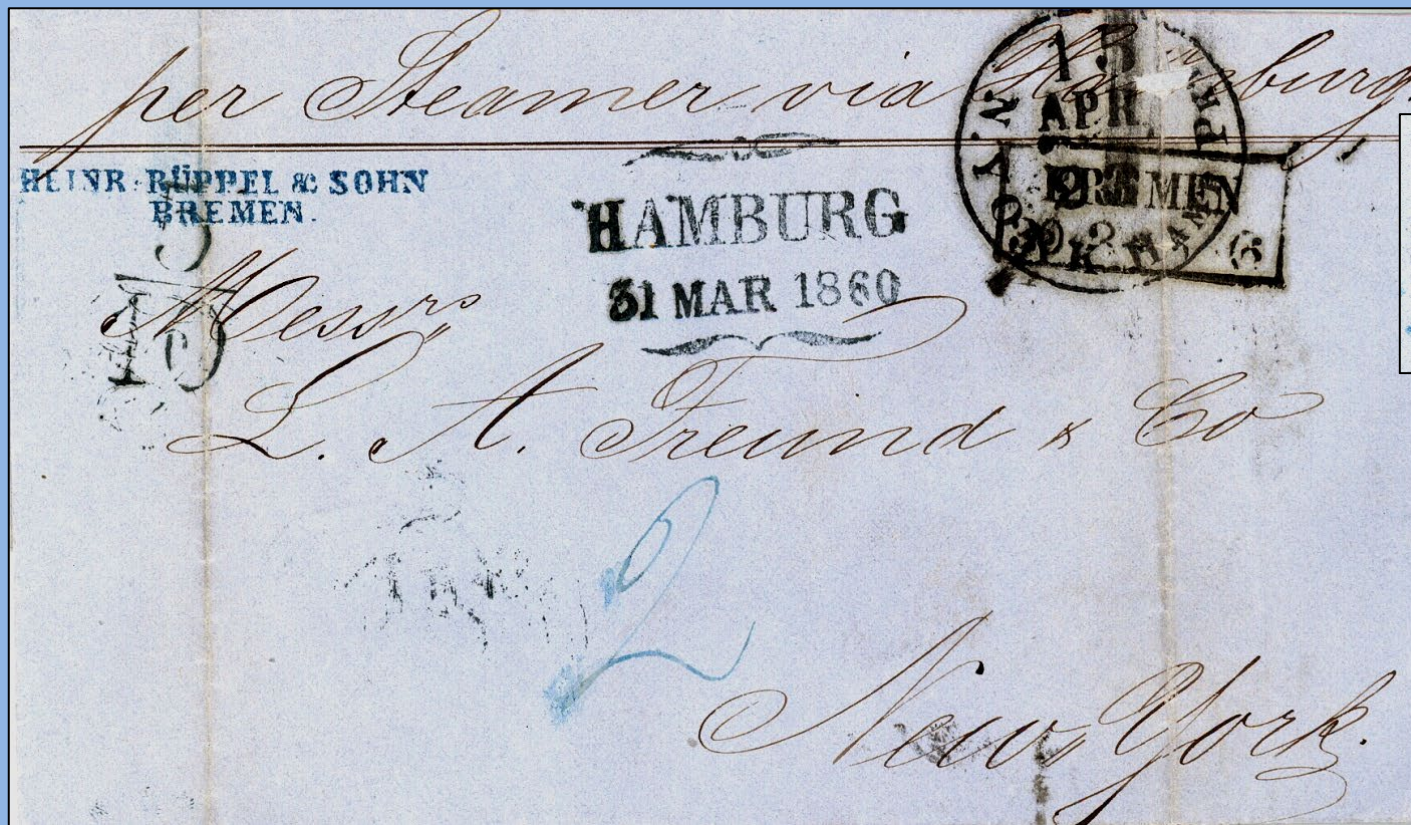 per Steamer via Hamburg.
HEINR. RÜPPEL & SOHN
BREMEN.
HAMBURG
31 MAR 1860
N. YORK HAM PKT
15
APR
BREMEN
30 3 6
5
10
Messrs
L. A. Freund & Co
2
New York.